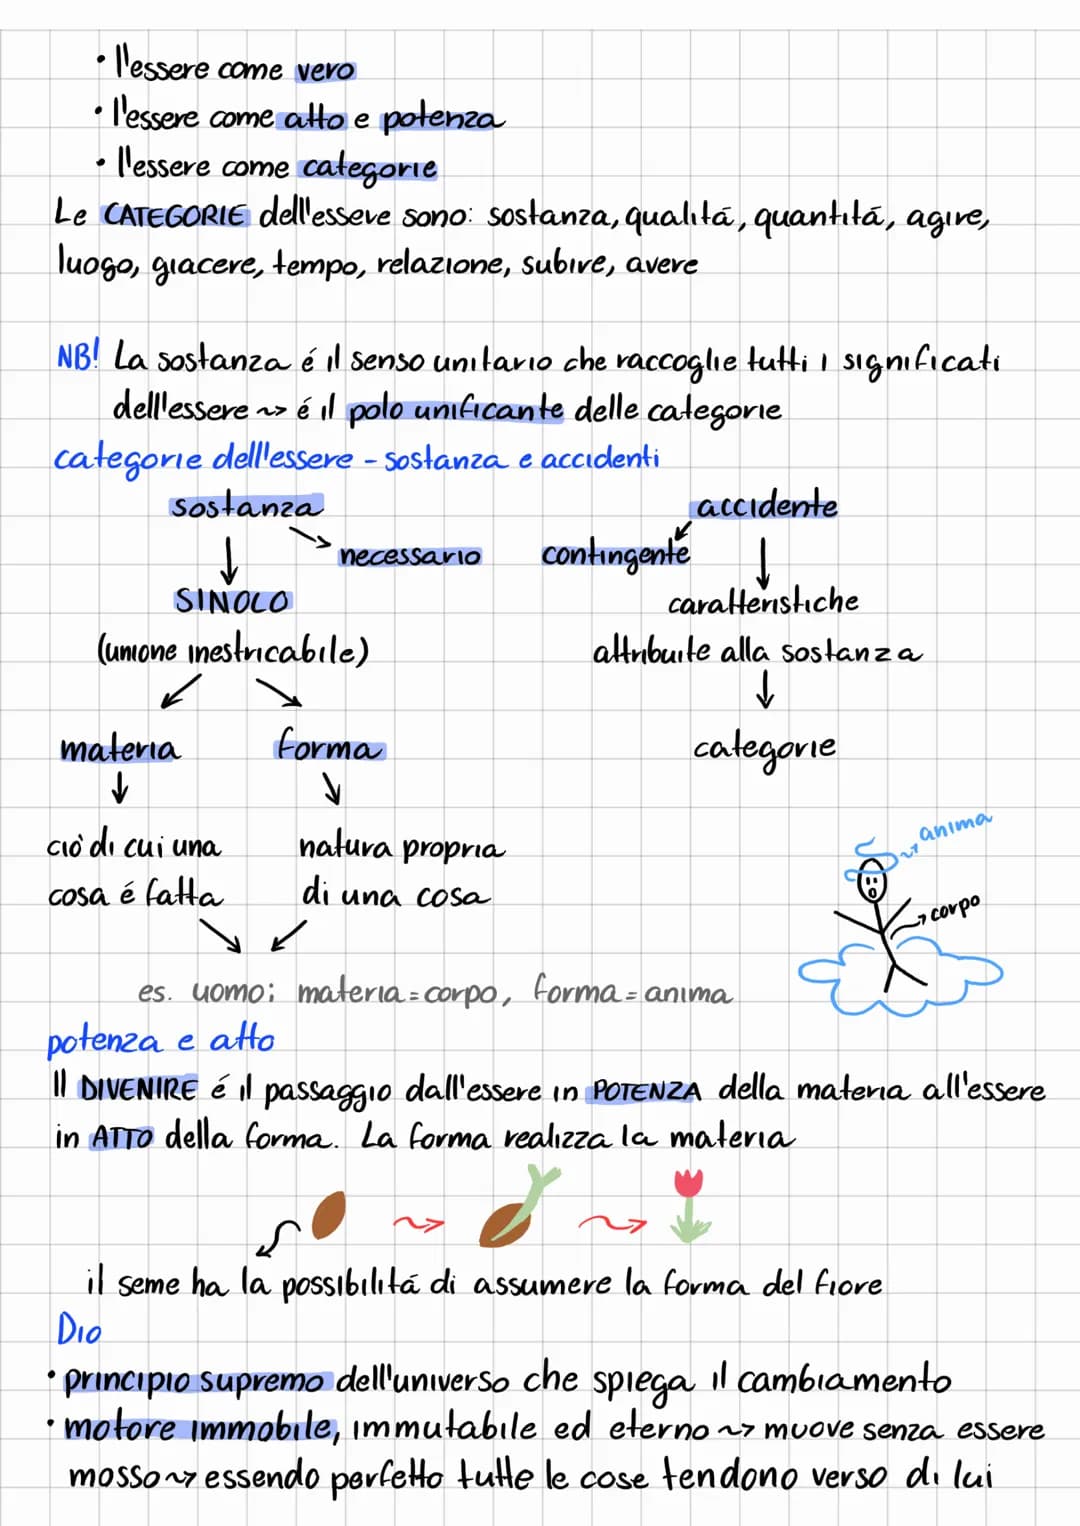 • l'essere come vero
• l'essere come atto e potenza
• l'essere come categorie
Le CATEGORIE dell'essere sono: sostanza, qualitá, quantitá, agire,
luogo, giacere, tempo, relazione, subire, avere
NB! La sostanza é il senso unitario che raccoglie tutti i significati
dell'essere ~> é il polo unificante delle categorie
categorie dell'essere - sostanza e accidenti
sostanza
accidente
necessario
contingente
SINOLO
caratteristiche
(unione inestricabile)
attribuite alla sostanza
materia
forma
categorie
ciò di cui una
cosa é fatta
natura propria
di una cosa
anima
corpo
es. uomo: materia=corpo, forma=anima
potenza e atto
Il DIVENIRE é il passaggio dall'essere in POTENZA della materia all'essere
in ATTO della forma. La forma realizza la materia
il seme ha la possibilitá di assumere la forma del fiore
Dio
• principio supremo dell'universo che spiega il cambiamento
• motore immobile, immutabile ed eterno ~> muove senza essere
mosso ~> essendo perfetto tutte le cose tendono verso di lui